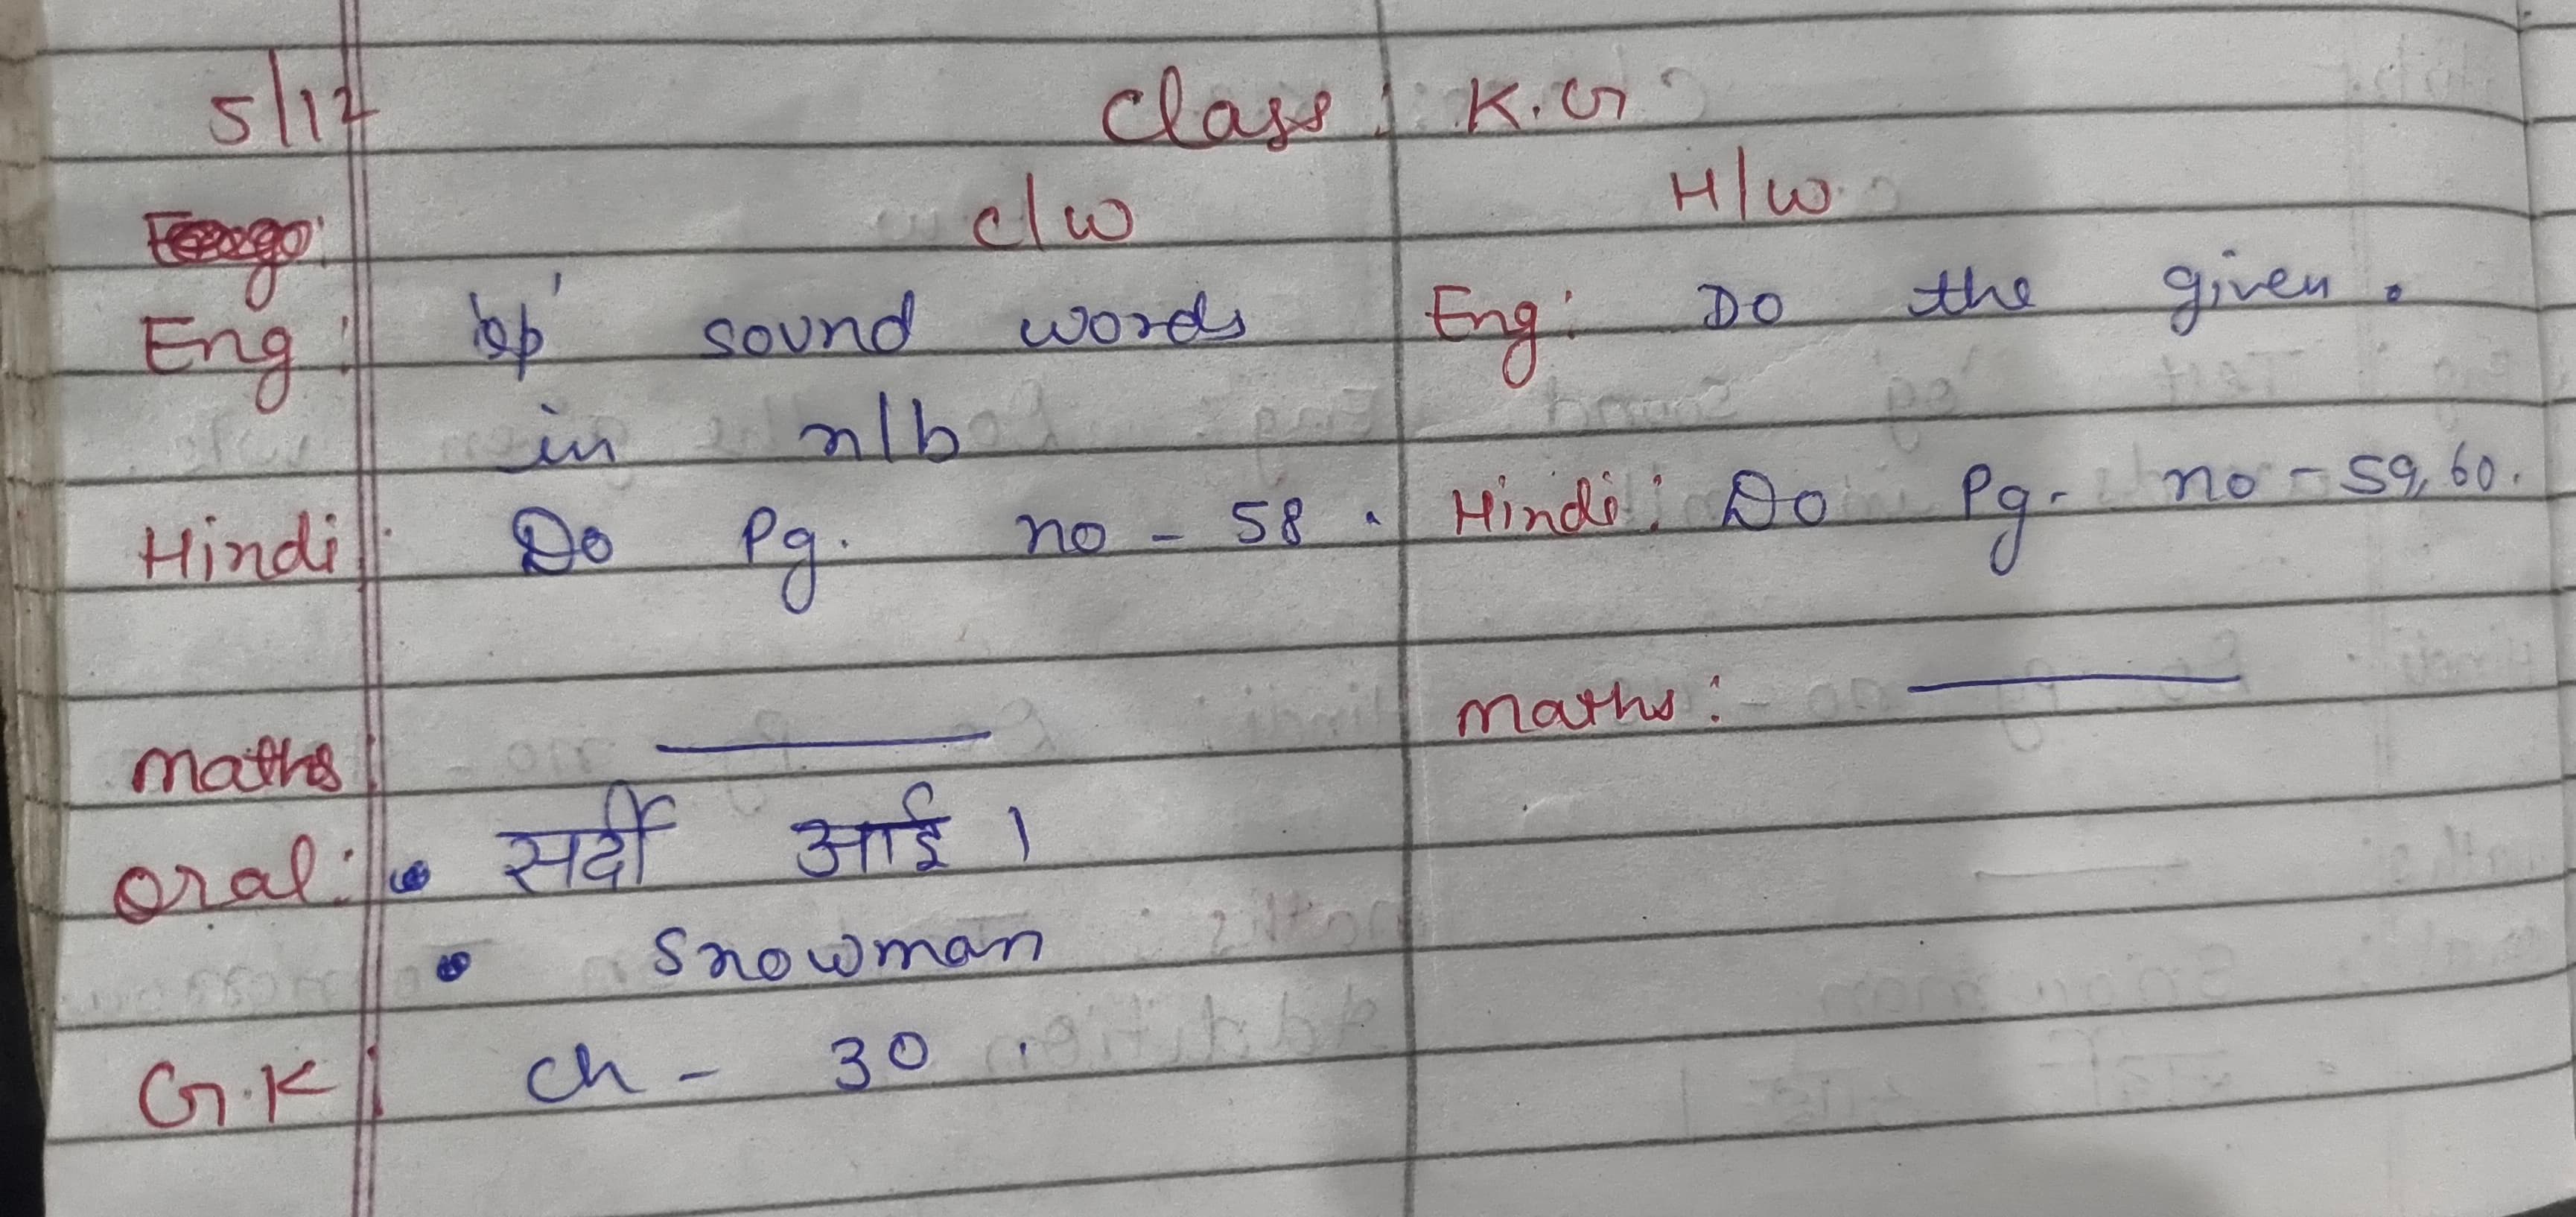 5/12 Class: K.G
C/W H/W
Eng: 'op' sound words
in n/b
Hindi: Do Pg. no - 58.
Maths: ———
Oral: • सर्दी आई।
• Snowman
G.K: Ch - 30.
Eng: Do the given.
Hindi: Do Pg. no - 59, 60.
Maths: ———